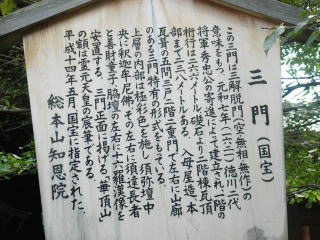 三門（国宝）
この三門は三解脱門（空・無相・無作）の
意味をもつ。元和七年（一六二一）徳川二代
将軍秀忠公の寄進によって建立され、一階の
桁行は二六・六メートル、礎石より二階棟瓦頂
部まで二三・八メートルある。入母屋造、本
瓦葺の五間三戸二階二重門で左右に山廊
のある三門特有の形式をもっている。
上層の内部は極彩色を施し、須弥壇中
央に釈迦牟尼佛、その左右に須達長者
と善財童子、脇壇の左右に十六羅漢像を
安置する。三門正面に掲げる「華頂山」
の額は霊元天皇の宸筆である。
平成十四年五月国宝に指定された。
総本山知恩院